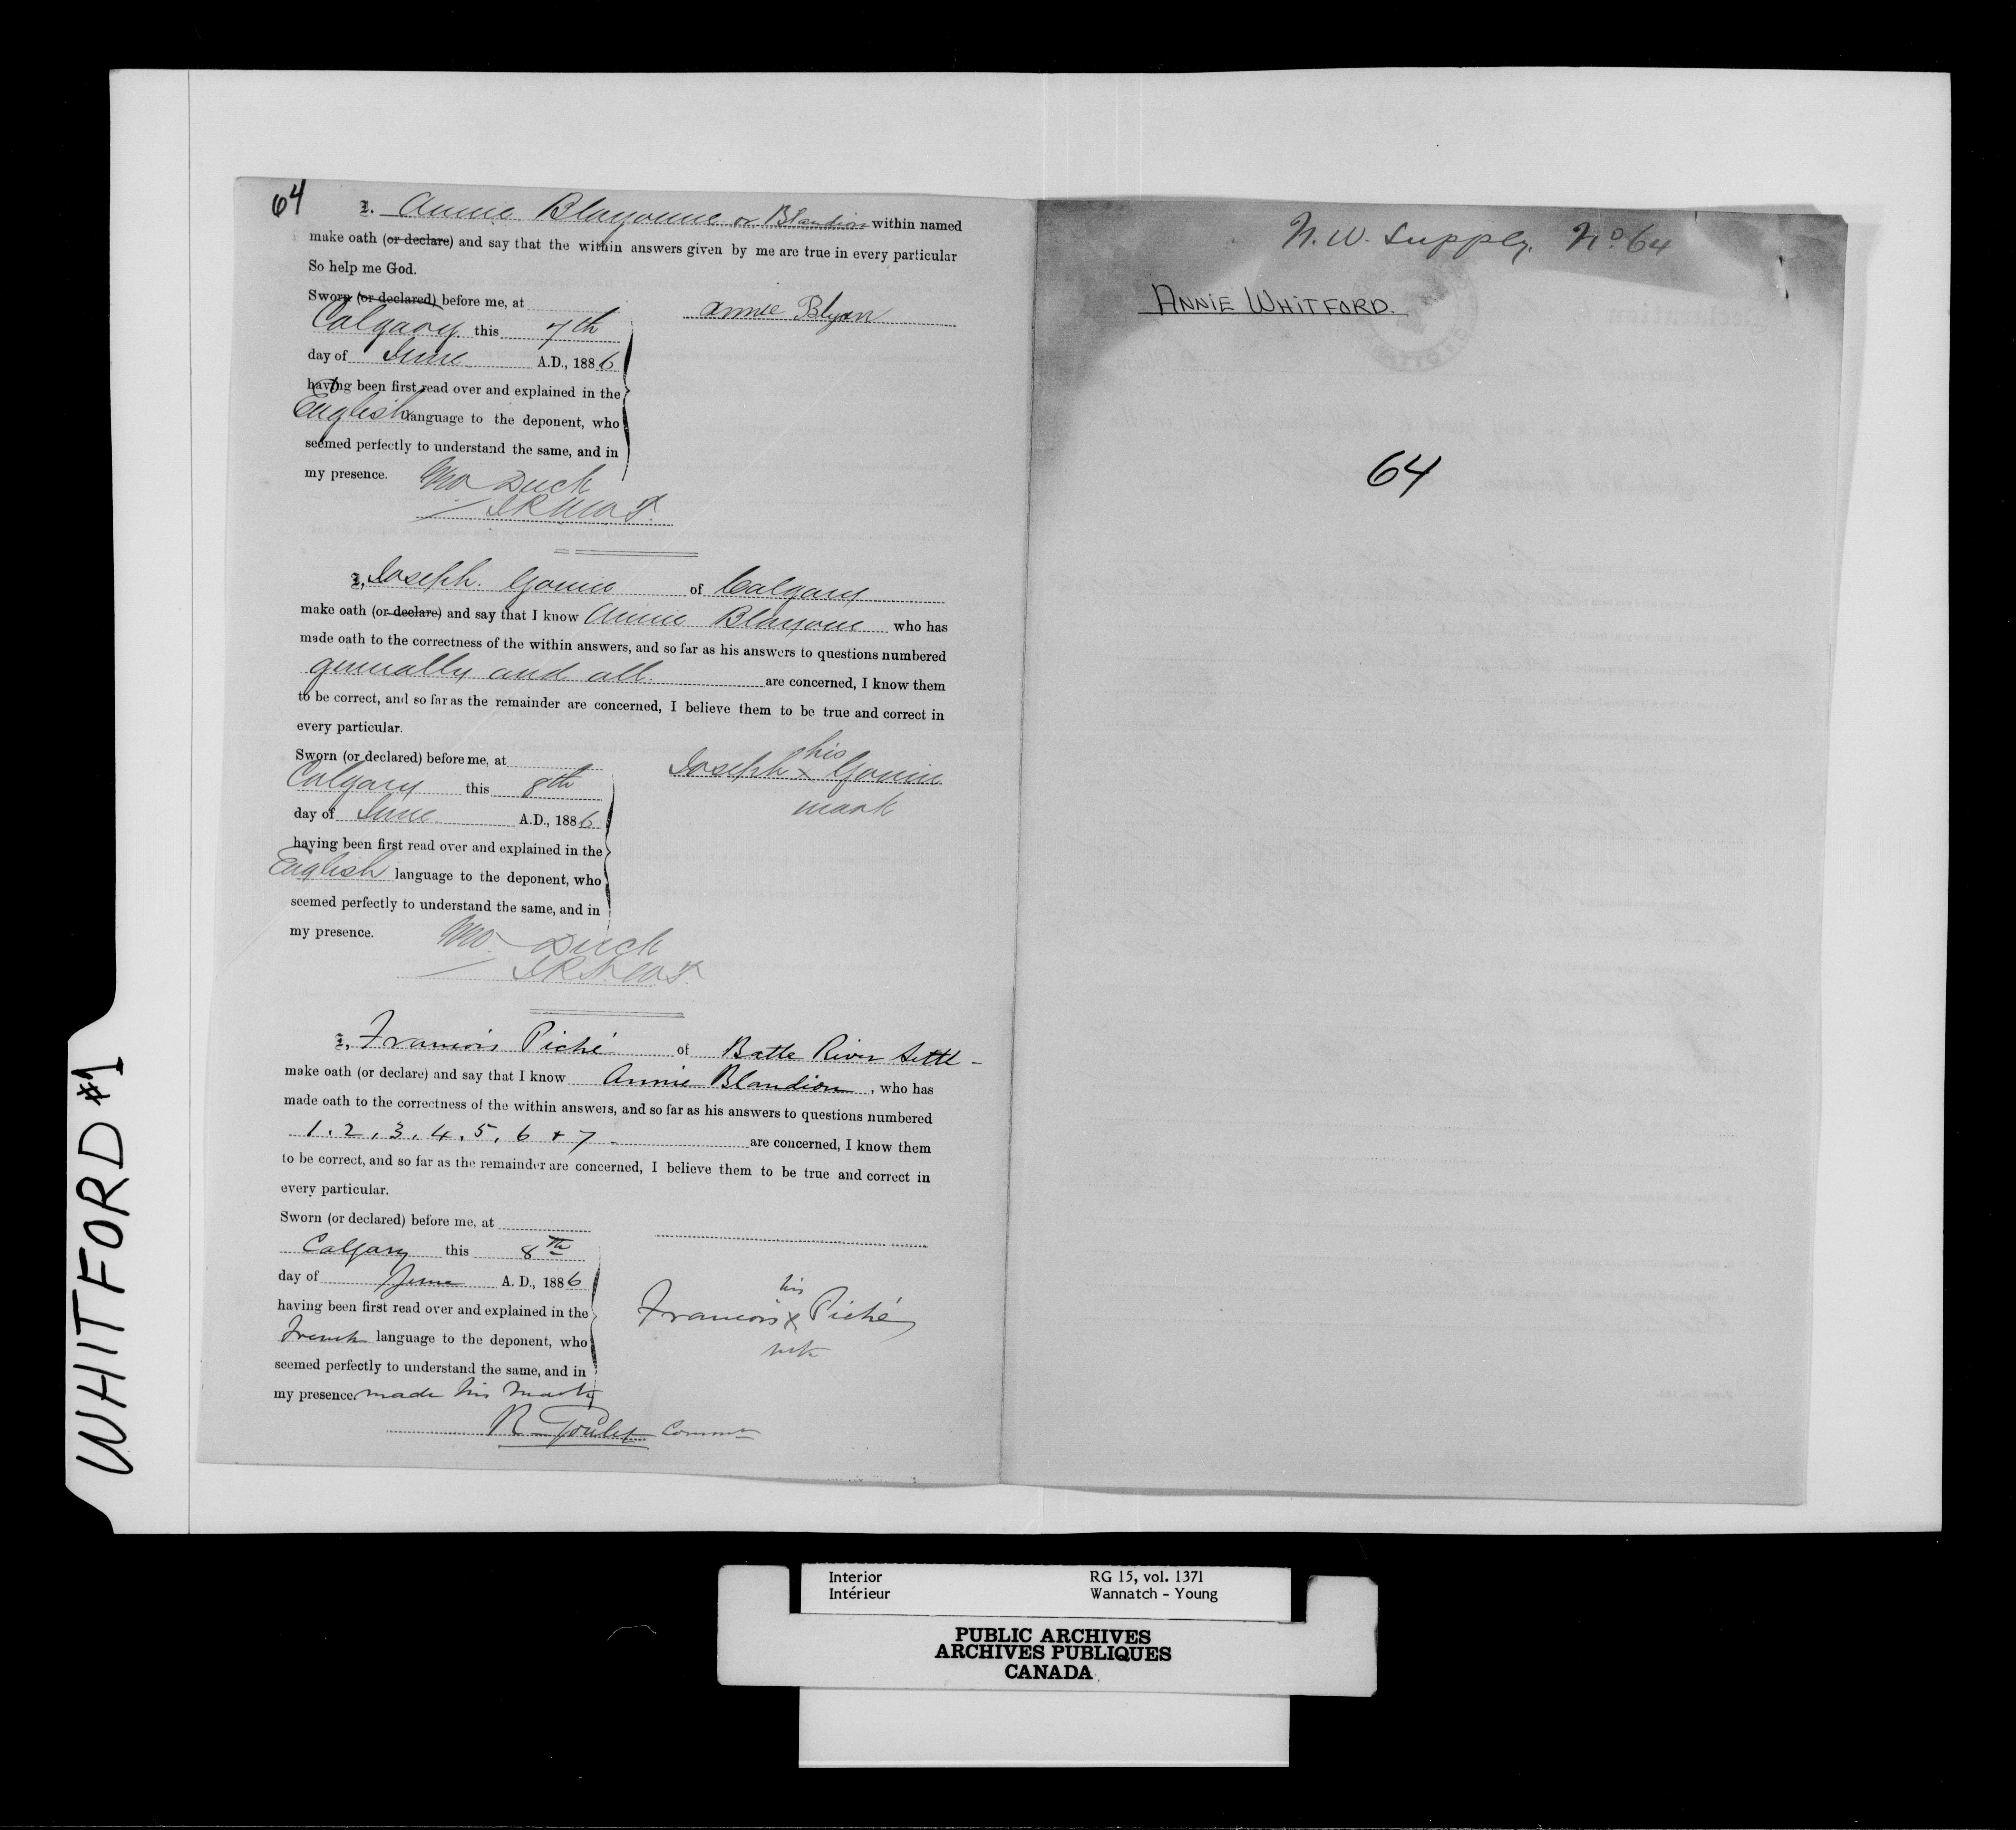 64
I. Annie Blayonne or Blandion within named
make oath (or declare) and say that the within answers given by me are true in every particular
So help me God.
Sworn (or declared) before me, at
Calgary this 7th
day of June A.D., 1886
having been first read over and explained in the
English language to the deponent, who
seemed perfectly to understand the same, and in
my presence.
Annie Blyon
Duck
I, Joseph of Calgary
make oath (or declare) and say that I know Annie Blayonne who has
made oath to the correctness of the within answers, and so far as his answers to questions numbered
generally and all. are concerned, I know them
to be correct, and so far as the remainder are concerned, I believe them to be true and correct in
every particular.
Sworn (or declared) before me, at
Calgary this 8th
day of June A.D., 1886
having been first read over and explained in the
English language to the deponent, who
seemed perfectly to understand the same, and in
my presence.
his
Joseph x
mark
Duck
I, Francois Piché of Battle River Settl-
make oath (or declare) and say that I know Annie Blandion, who has
made oath to the correctness of the within answers, and so far as his answers to questions numbered
1. 2, 3, 4, 5, 6 + 7 - are concerned, I know them
to be correct, and so far as the remainder are concerned, I believe them to be true and correct in
every particular.
Sworn (or declared) before me, at
Calgary this 8th
day of June A. D., 1886
having been first read over and explained in the
French language to the deponent, who
seemed perfectly to understand the same, and in
my presence made his mark
his
Francois x Piché
mk
R Goulet Commr
N. W. Supply. No. 64
ANNIE WHITFORD.
64
WHITFORD #1
Interior RG 15, vol. 1371
Intérieur Wannatch - Young
PUBLIC ARCHIVES
ARCHIVES PUBLIQUES
CANADA